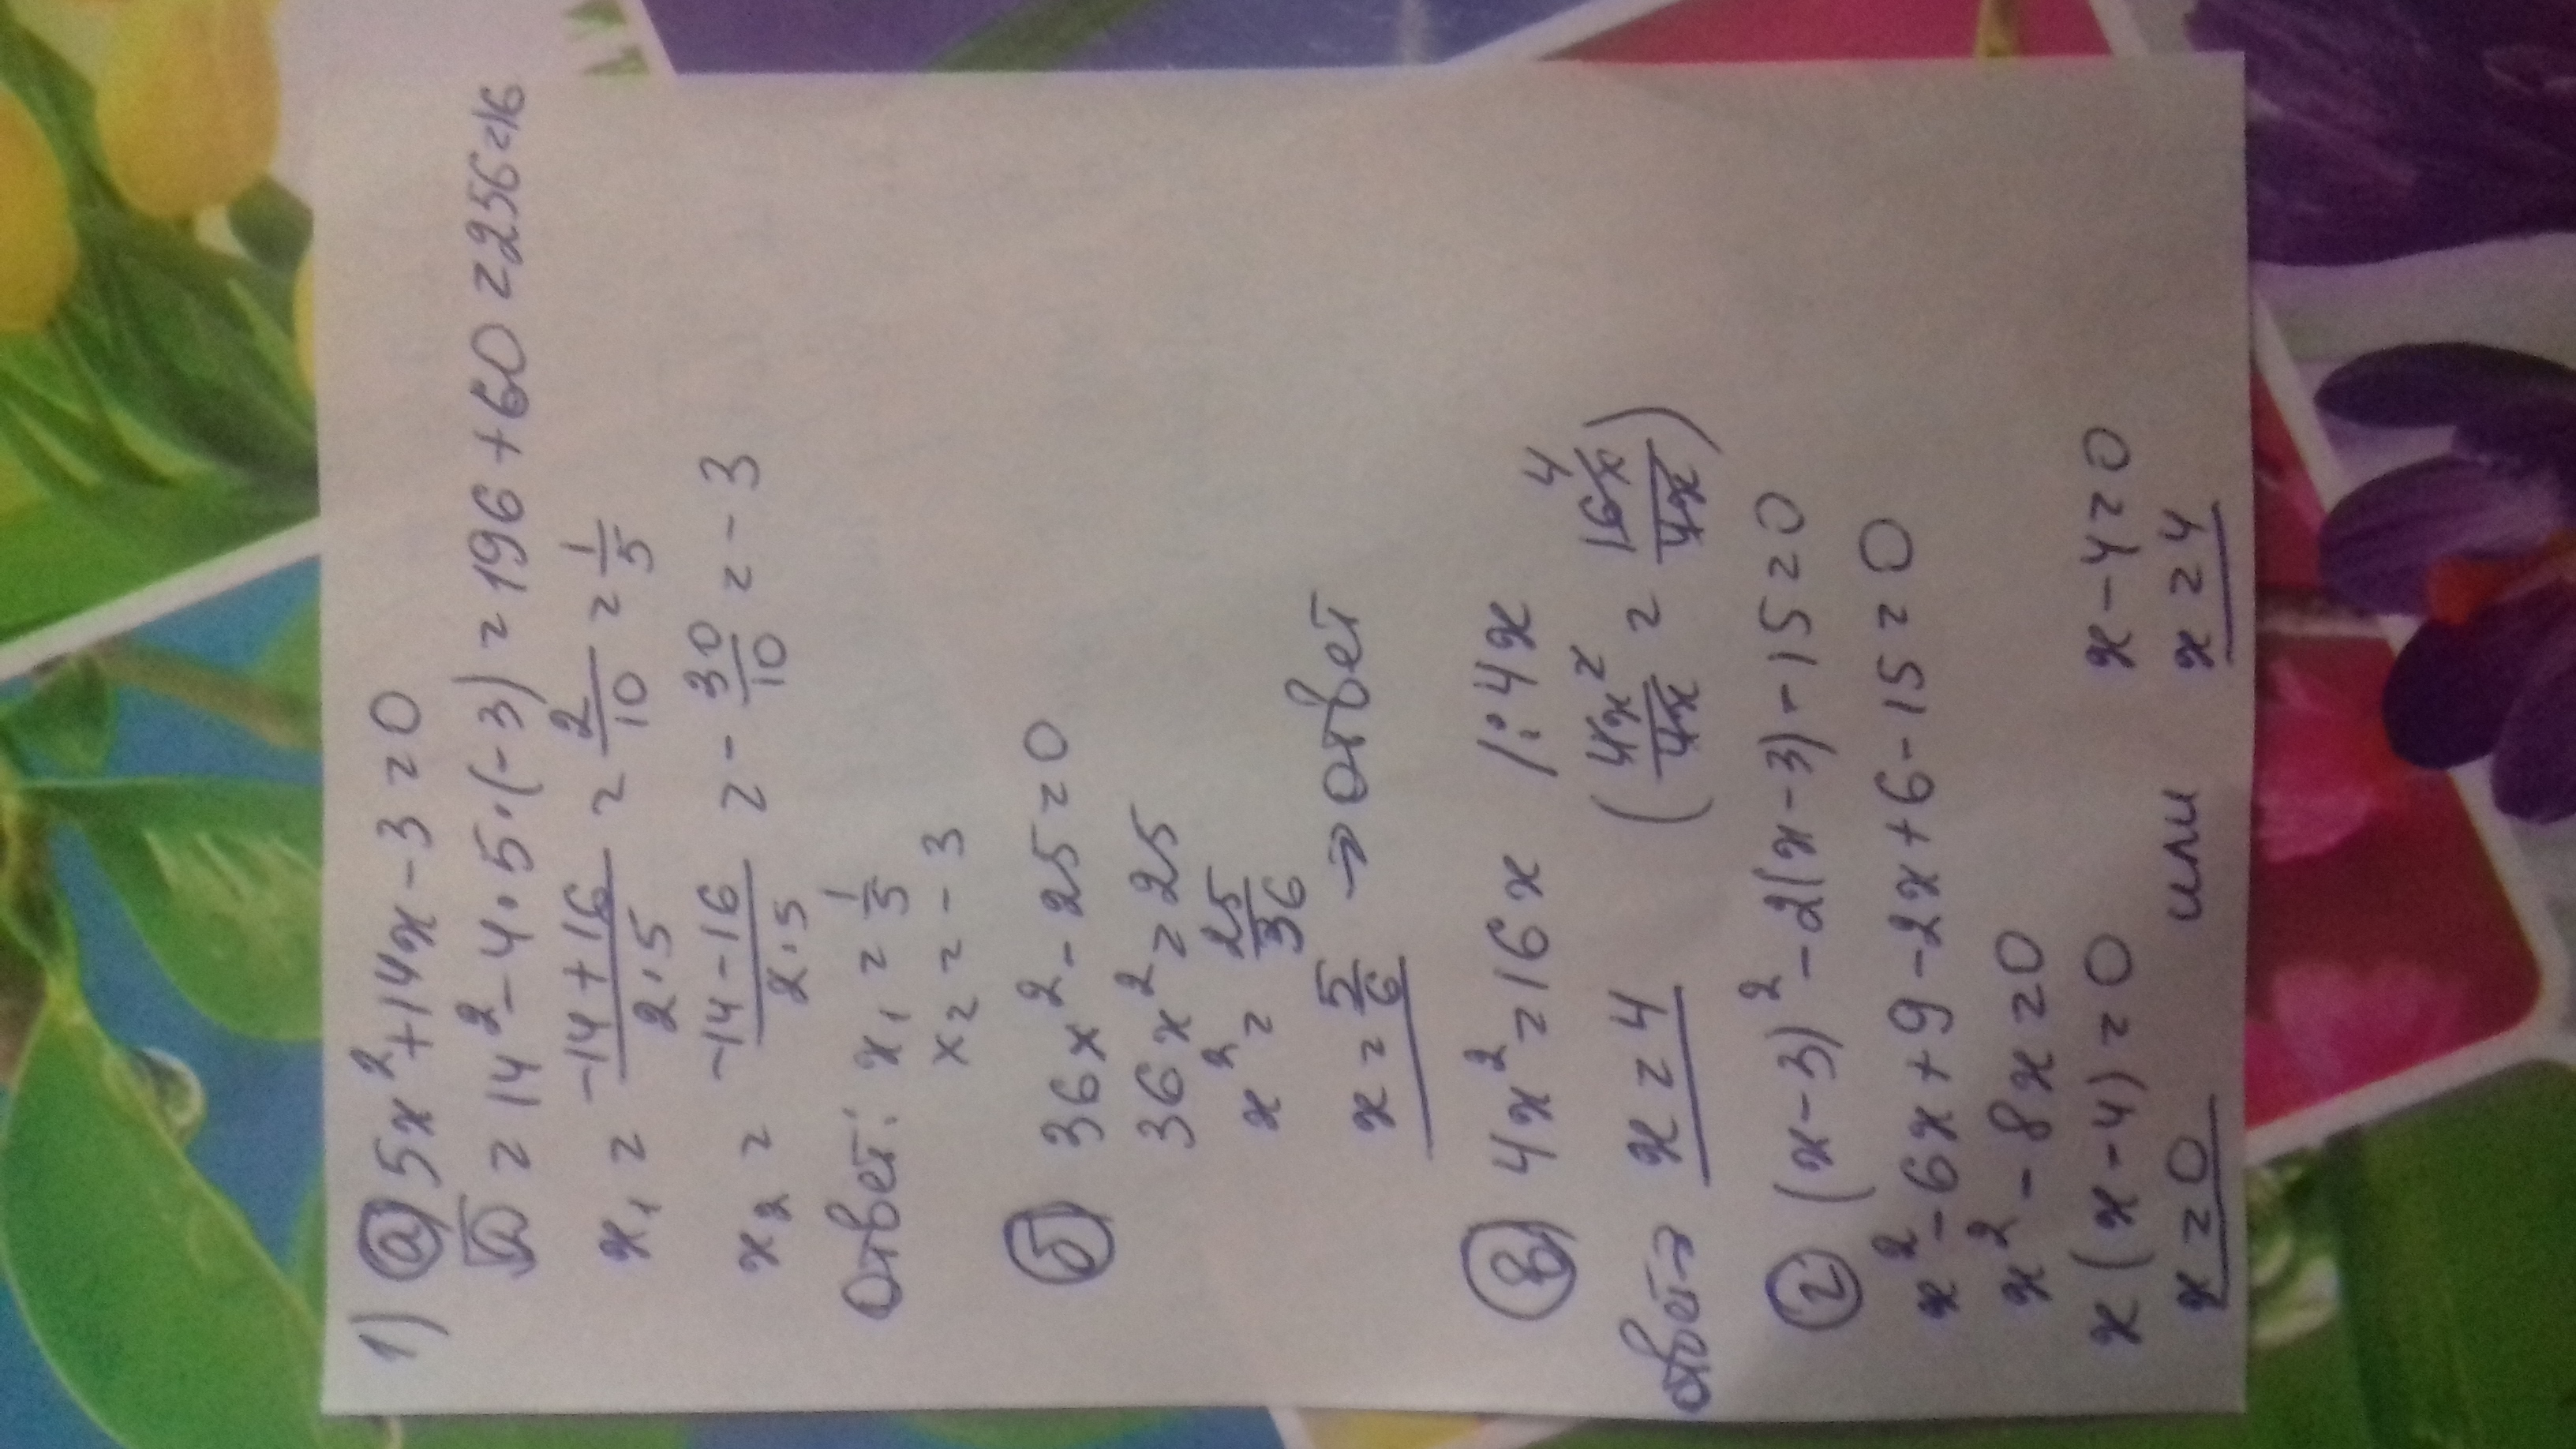 1) а) 5x² + 14x - 3 = 0
√D = 14² - 4 · 5 · (-3) = 196 + 60 = 256 = 16
x₁ = (-14 + 16)/(2 · 5) = 2/10 = 1/5
x₂ = (-14 - 16)/(2 · 5) = - 30/10 = - 3
Ответ: x₁ = 1/5
x₂ = - 3
б) 36x² - 25 = 0
36x² = 25
x² = 25/36
x = 5/6 → ответ
в) 4x² = 16x /: 4x
(4x²/4x = 16x/4x) 4
ответ → x = 4
г) (x - 3)² - 2(x - 3) - 15 = 0
x² - 6x + 9 - 2x + 6 - 15 = 0
x² - 8x = 0
x (x - 4) = 0 x - 4 = 0
x = 0 или x = 4